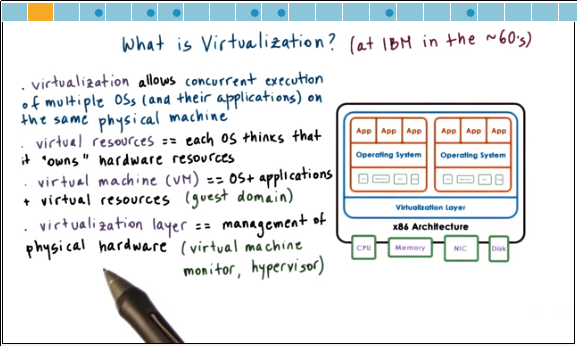 What is Virtualization? (at IBM in the ~60's)
. virtualization allows concurrent execution
of multiple OSs (and their applications) on
the same physical machine
. virtual resources == each OS thinks that
it "owns" hardware resources
. virtual machine (VM) == OS + applications
+ virtual resources (guest domain)
. virtualization layer == management of
physical hardware (virtual machine
monitor, hypervisor)
App App App App App App
Operating System Operating System
Virtualization Layer
x86 Architecture
CPU Memory NIC Disk